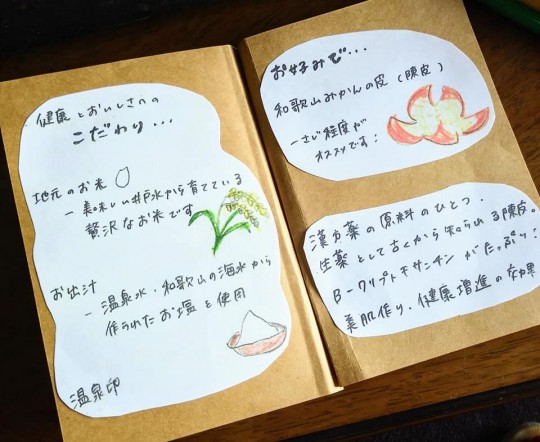 健康とおいしさへの
こだわり...
地元のお米
- 美味しい井戸水から育てている
贅沢なお米です
お出汁
- 温泉水・和歌山の海水から
作られたお塩を使用
温泉卵
お好みで...
和歌山みかんの皮(陳皮)
一さじ程度が
オススメです!
漢方薬の原料のひとつ。
生薬として古くから知られる陳皮。
β-クリプトキサンチンがたっぷり!
美肌作り、健康増進の効果